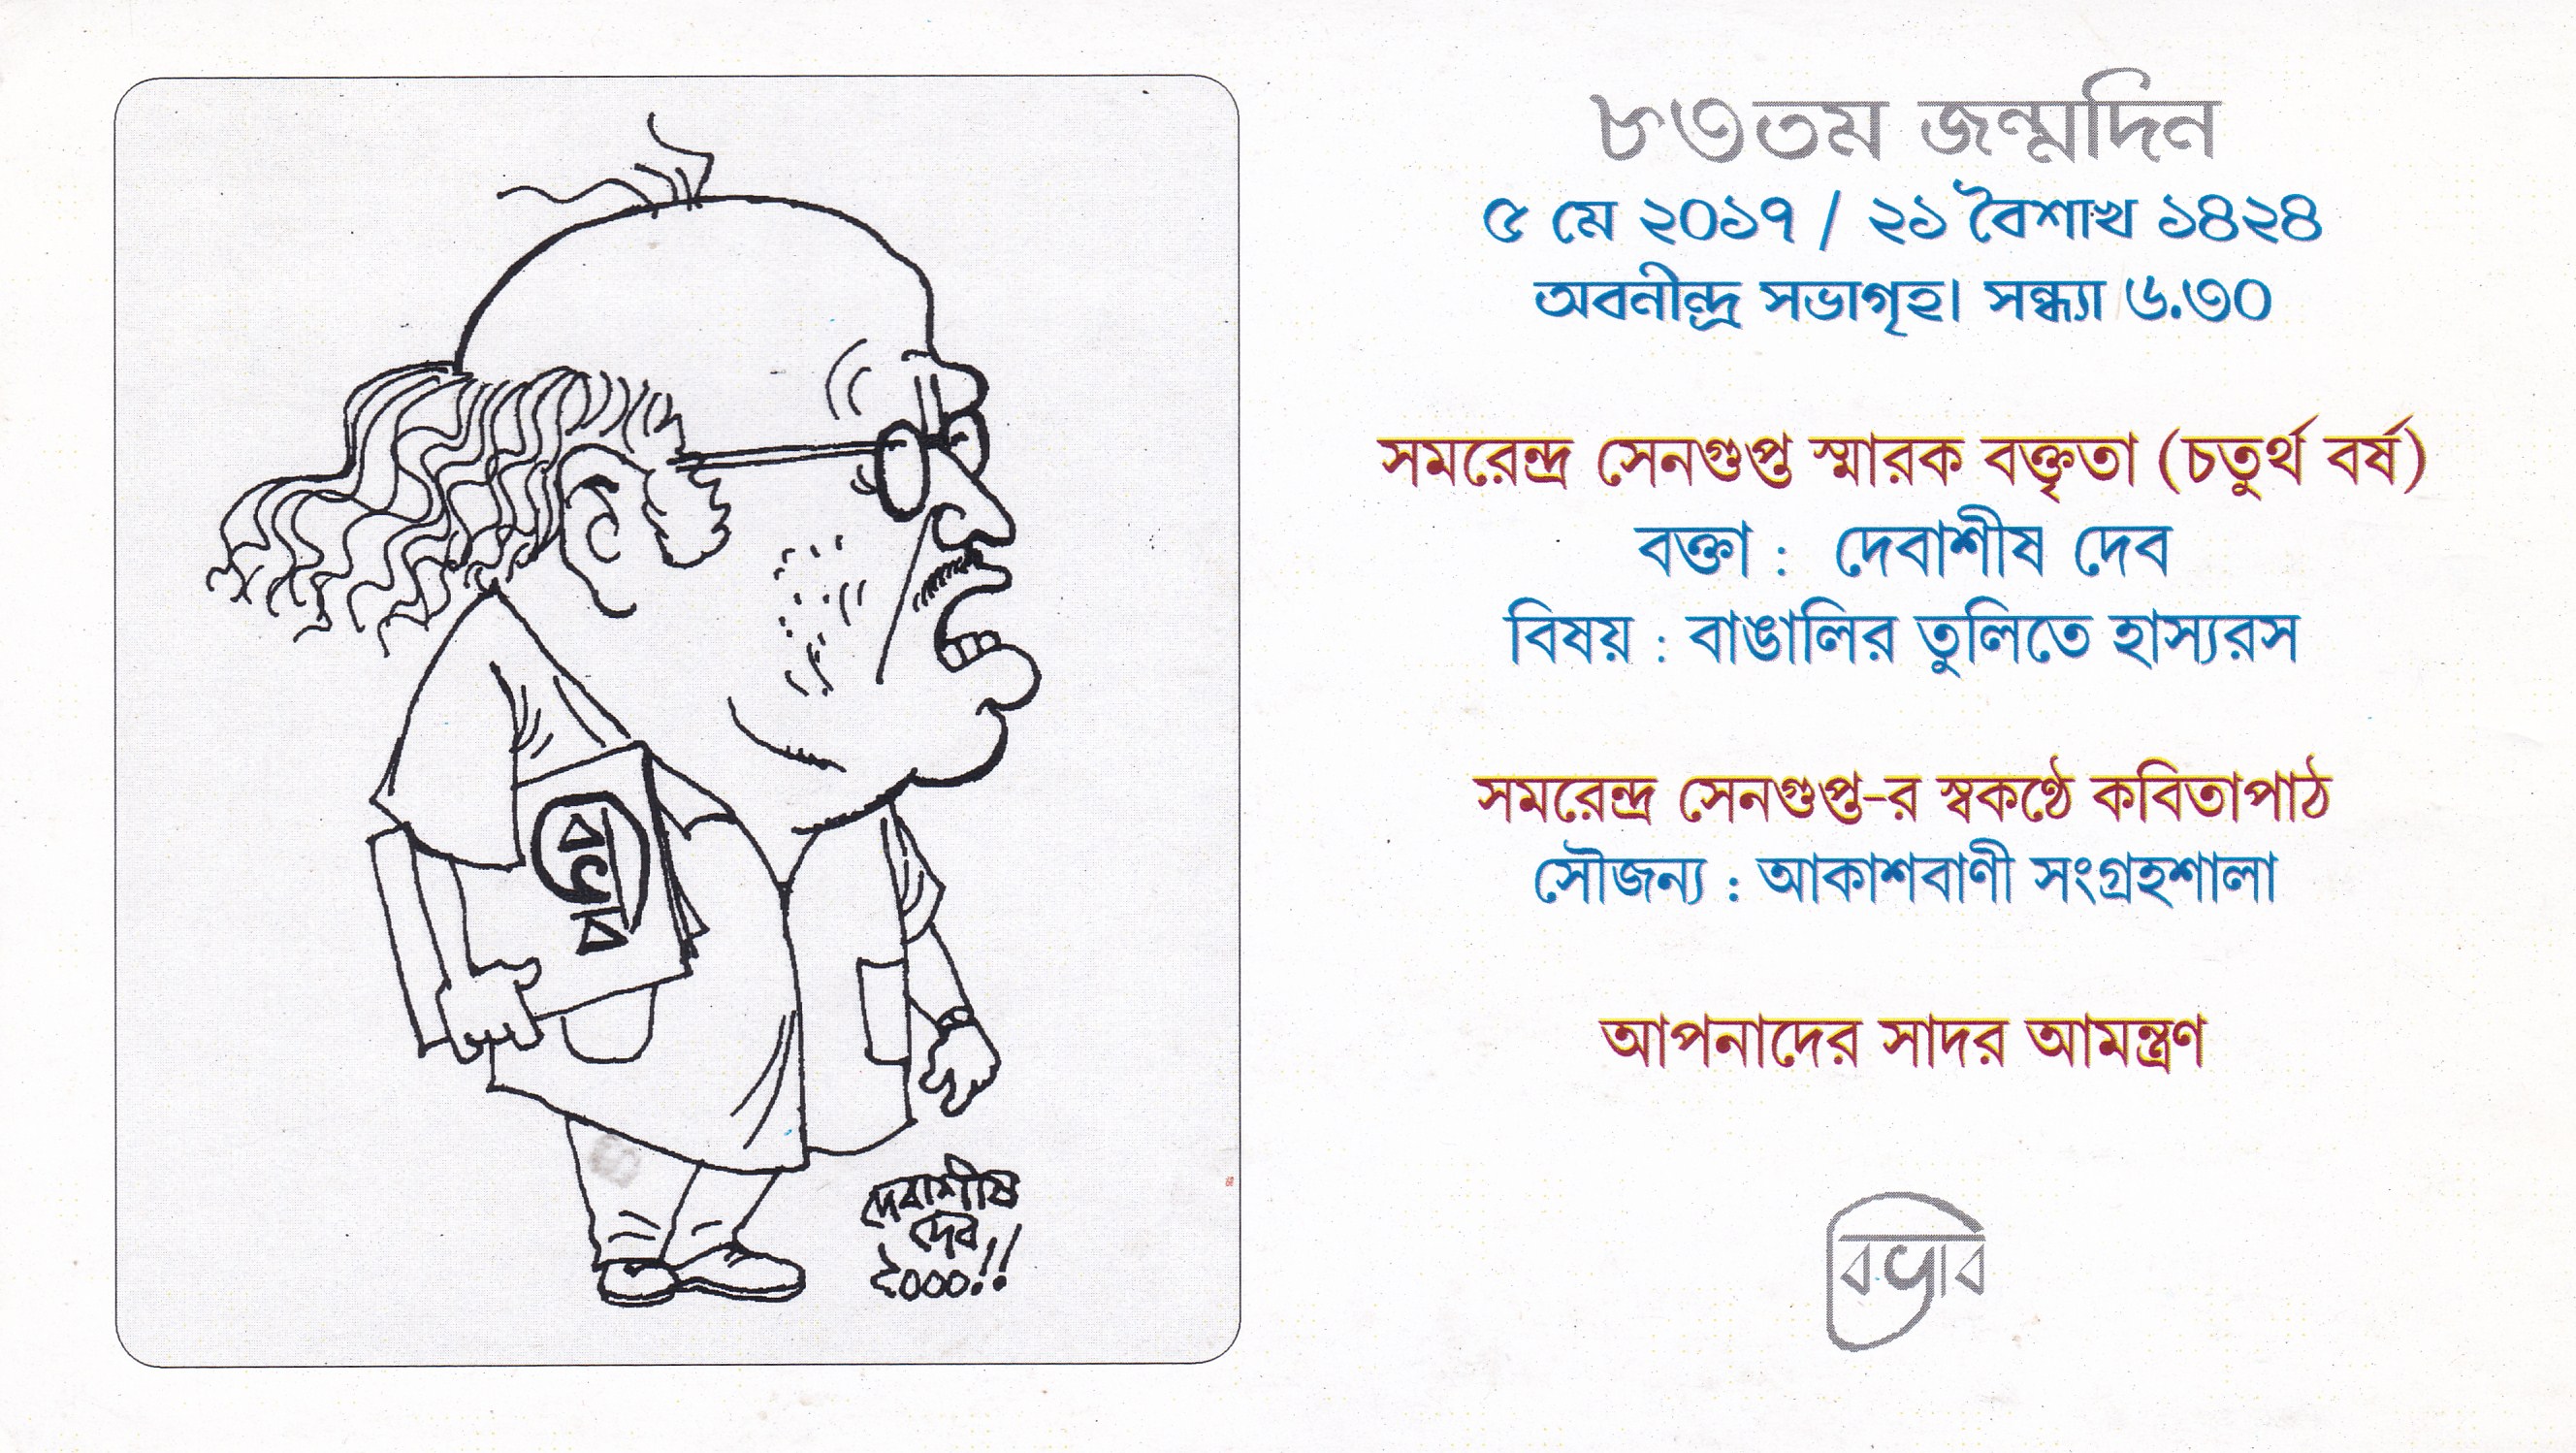 বিভাব
দেবাশীষ
দেব
২০০০!!
৮৩তম জন্মদিন
৫ মে ২০১৭ / ২১ বৈশাখ ১৪২৪
অবনীন্দ্র সভাগৃহ। সন্ধ্যা ৬.৩০
সমরেন্দ্র সেনগুপ্ত স্মারক বক্তৃতা (চতুর্থ বর্ষ)
বক্তা : দেবাশীষ দেব
বিষয় : বাঙালির তুলিতে হাস্যরস
সমরেন্দ্র সেনগুপ্ত-র স্বকণ্ঠে কবিতাপাঠ
সৌজন্য : আকাশবাণী সংগ্রহশালা
আপনাদের সাদর আমন্ত্রণ
বিভাব